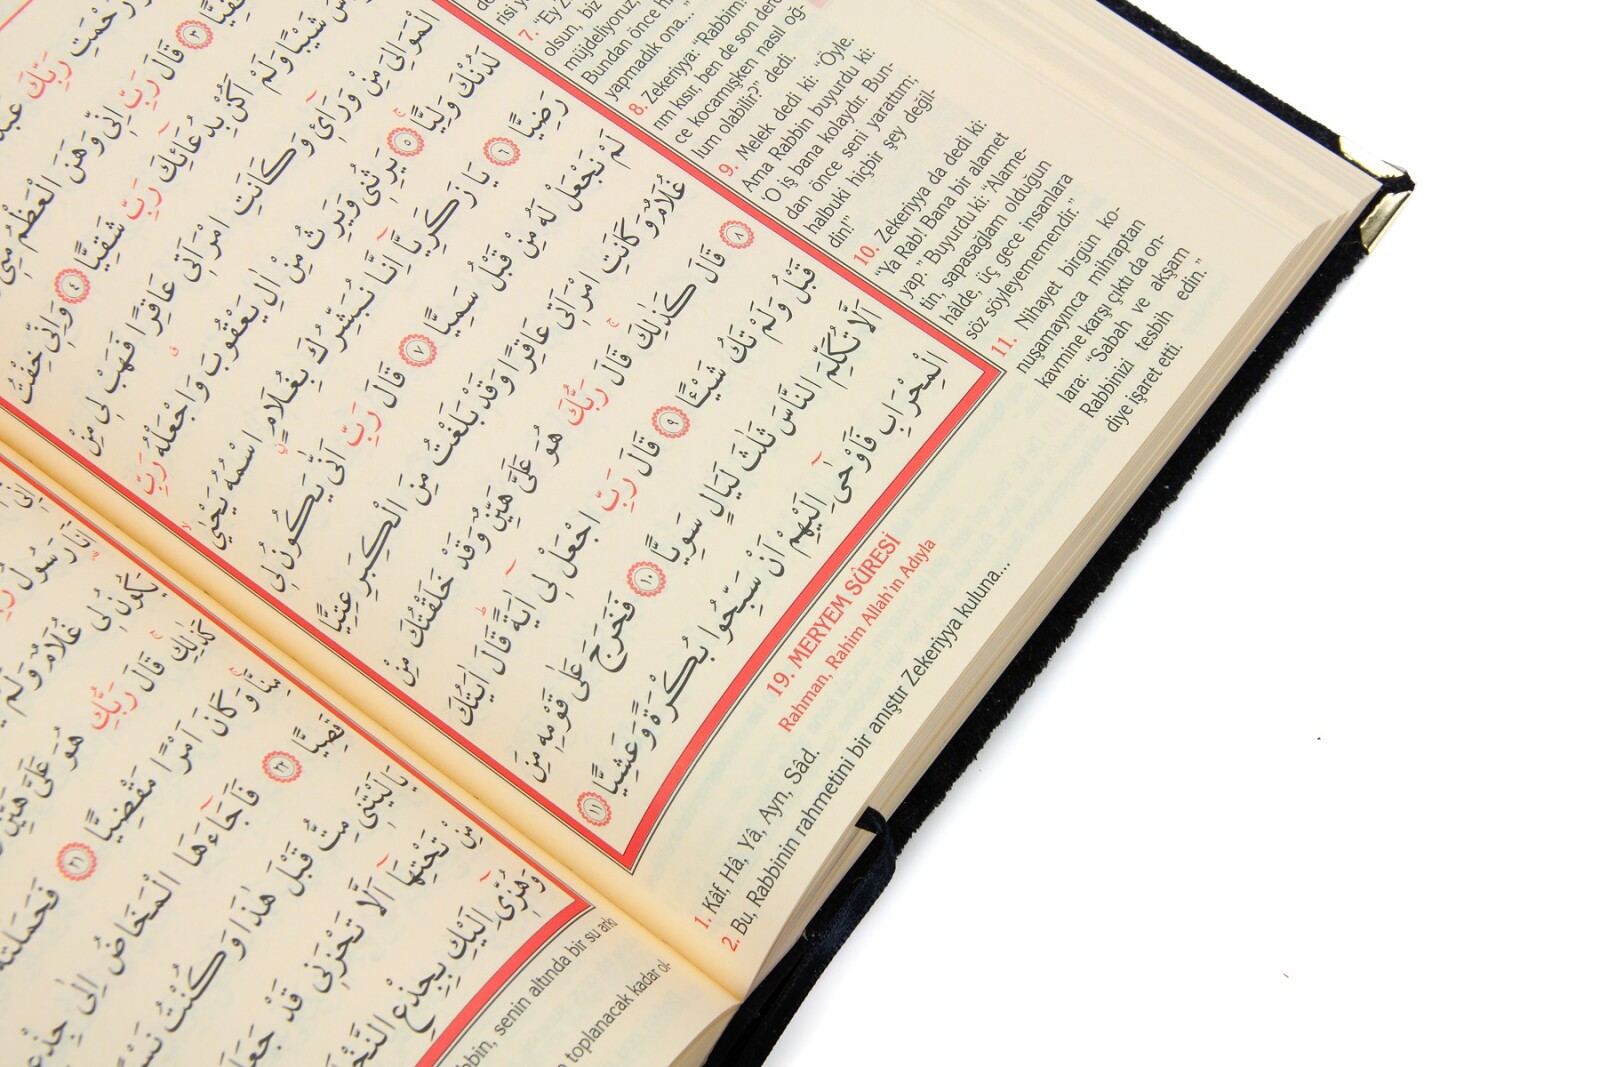 رَحْمَتِ رَبِّكَ
قَالَ رَبِّ اِنّ۪ي وَهَنَ الْعَظْمُ
شَيْبًا وَلَمْ اَكُنْ بِدُعَٓائِكَ رَبِّ شَقِيًّا ﴿٤﴾ وَاِنّ۪ي خِفْتُ
الْمَوَالِيَ مِنْ وَرَٓاء۪ي وَكَانَتِ امْرَاَت۪ي عَاقِرًا فَهَبْ ل۪ي مِنْ
لَدُنْكَ وَلِيًّا ﴿٥﴾ يَرِثُن۪ي وَيَرِثُ مِنْ اٰلِ يَعْقُوبَ وَاجْعَلْهُ رَبِّ
رَضِيًّا ﴿٦﴾ يَا زَكَرِيَّٓا اِنَّا نُبَشِّرُكَ بِغُلَامٍۨ اسْمُهُ يَحْيٰى
لَمْ نَجْعَلْ لَهُ مِنْ قَبْلُ سَمِيًّا ﴿٧﴾ قَالَ رَبِّ اَنّٰى يَكُونُ ل۪ي
غُلَامٌ وَكَانَتِ امْرَاَت۪ي عَاقِرًا وَقَدْ بَلَغْتُ مِنَ الْكِبَرِ عِتِيًّا
﴿٨﴾ قَالَ كَذٰلِكَ قَالَ رَبُّكَ هُوَ عَلَيَّ هَيِّنٌ وَقَدْ خَلَقْتُكَ مِنْ
قَبْلُ وَلَمْ تَكُ شَيْـًٔا ﴿٩﴾ قَالَ رَبِّ اجْعَلْ ل۪ٓي اٰيَةً قَالَ اٰيَتُكَ
اَلَّا تُكَلِّمَ النَّاسَ ثَلٰثَ لَيَالٍ سَوِيًّا ﴿١٠﴾ فَخَرَجَ عَلٰى قَوْمِه۪ مِنَ
الْمِحْرَابِ فَاَوْحٰٓى اِلَيْهِمْ اَنْ سَبِّحُوا بُكْرَةً وَعَشِيًّا ﴿١١﴾
7. "Ey Z
olsun, biz
müjdeliyoruz,
Bundan önce
yapmadık ona..."
8. Zekeriyya: "Rabbim!
rım kısır, ben de son dere-
ce kocamışken nasıl oğ-
lum olabilir?" dedi.
9. Melek dedi ki: "Öyle.
Ama Rabbin buyurdu ki:
'O iş bana kolaydır. Bun-
dan önce seni yarattım;
halbuki hiçbir şey değil-
din!"
10. Zekeriyya da dedi ki:
"Ya Rab! Bana bir alamet
yap." Buyurdu ki: "Alame-
tin, sapasağlam olduğun
hâlde, üç gece insanlara
söz söyleyememendir."
11. Nihayet birgün ko-
nuşamayınca mihraptan
kavmine karşı çıktı da on-
lara: "Sabah ve akşam
Rabbinizi tesbih edin."
diye işaret etti.
19. MERYEM SÛRESİ
Rahman, Rahim Allah'ın Adıyla
1. Kâf, Hâ, Yâ, Ayn, Sâd.
2. Bu, Rabbinin rahmetini bir anıştır Zekeriyya kuluna...
رَسُولُ
يَكُونُ ل۪ي غُلَامٌ وَلَمْ
كَذٰلِكِ قَالَ رَبُّكِ هُوَ عَلَيَّ هَيِّنٌ
مِنَّا وَكَانَ اَمْرًا مَقْضِيًّا ﴿٢١﴾ فَحَمَلَتْهُ
قَصِيًّا ﴿٢٢﴾ فَاَجَٓاءَهَا الْمَخَاضُ اِلٰى جِذْعِ
يَا لَيْتَن۪ي مِتُّ قَبْلَ هٰذَا وَكُنْتُ
مِنْ تَحْتِهَٓا اَلَّا تَحْزَن۪ي قَدْ جَعَلَ
وَهُزّ۪ٓي اِلَيْكِ بِجِذْعِ
senin altında bir su arkı
toplanacak kadar ol-